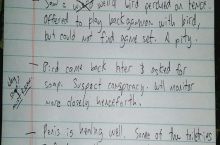 Saw a weird bird perched on fence.
Offered to play backgammon with bird,
but could not find game set. A pity.
— Bird came back later & asked for
soap. Suspect conspiracy. Will monitor
more closely henceforth.
— Penis is healing well. Some of the